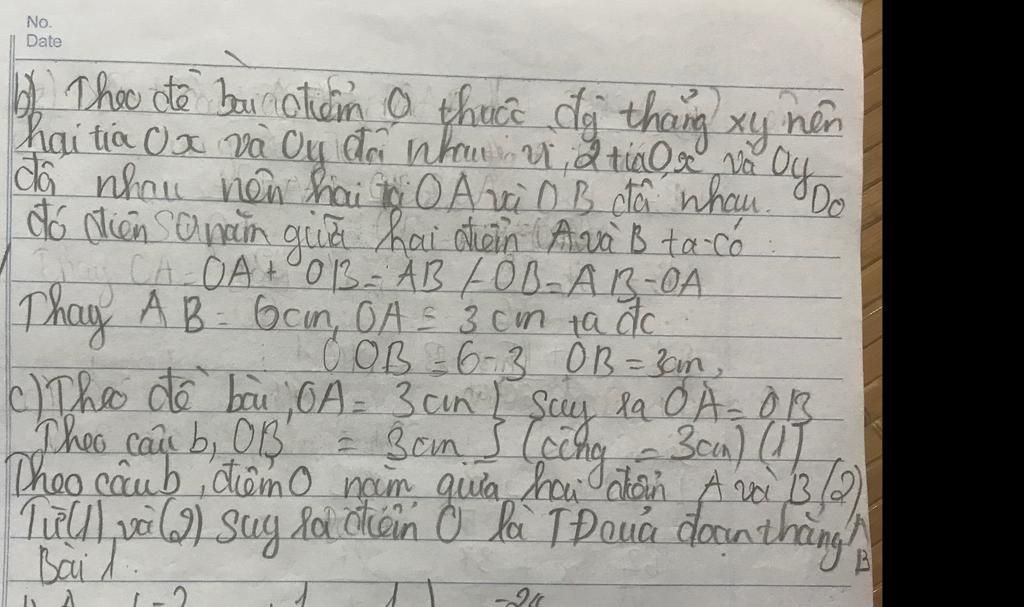 No.
Date
b) Theo đề bài điểm O thuộc đg thẳng xy nên
hai tia Ox và Oy đối nhau vì, 2 tia Ox và Oy
đối nhau nên hai tia OA và OB đối nhau. Do
đó điểm O nằm giữa hai điểm A và B ta có:
OA + OB = AB /- OB = AB - OA
Thay AB = 6cm, OA = 3cm ta đc
OB = 6-3 OB = 3cm,
c) Theo đề bài, OA = 3cm } suy ra OA = OB
Theo câu b, OB = 3cm } (cùng = 3cm) (1)
Theo câu b, điểm O nằm giữa hai điểm A và B (2)
Từ (1) và (2) suy ra điểm O là TĐ của đoạn thẳng A
B
Bài 1.